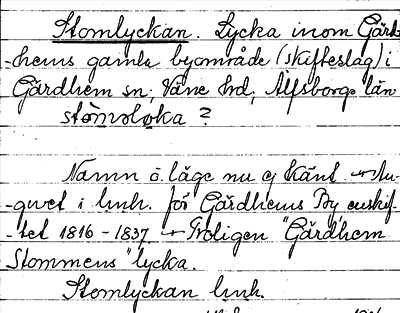 Stomlyckan. Lycka inom Gärd-
-hems gamla byområde (skifteslag) i
Gärdhem sn, Väne hd, Älfsborgs län
stòmsløka ?
Namn o. läge nu ej känt. An-
-givet i lmh. för Gärdhems By enskif-
-tet 1816 - 1837 Troligen "Gärdhem
Stommens" lycka.
Stomlyckan lmh.